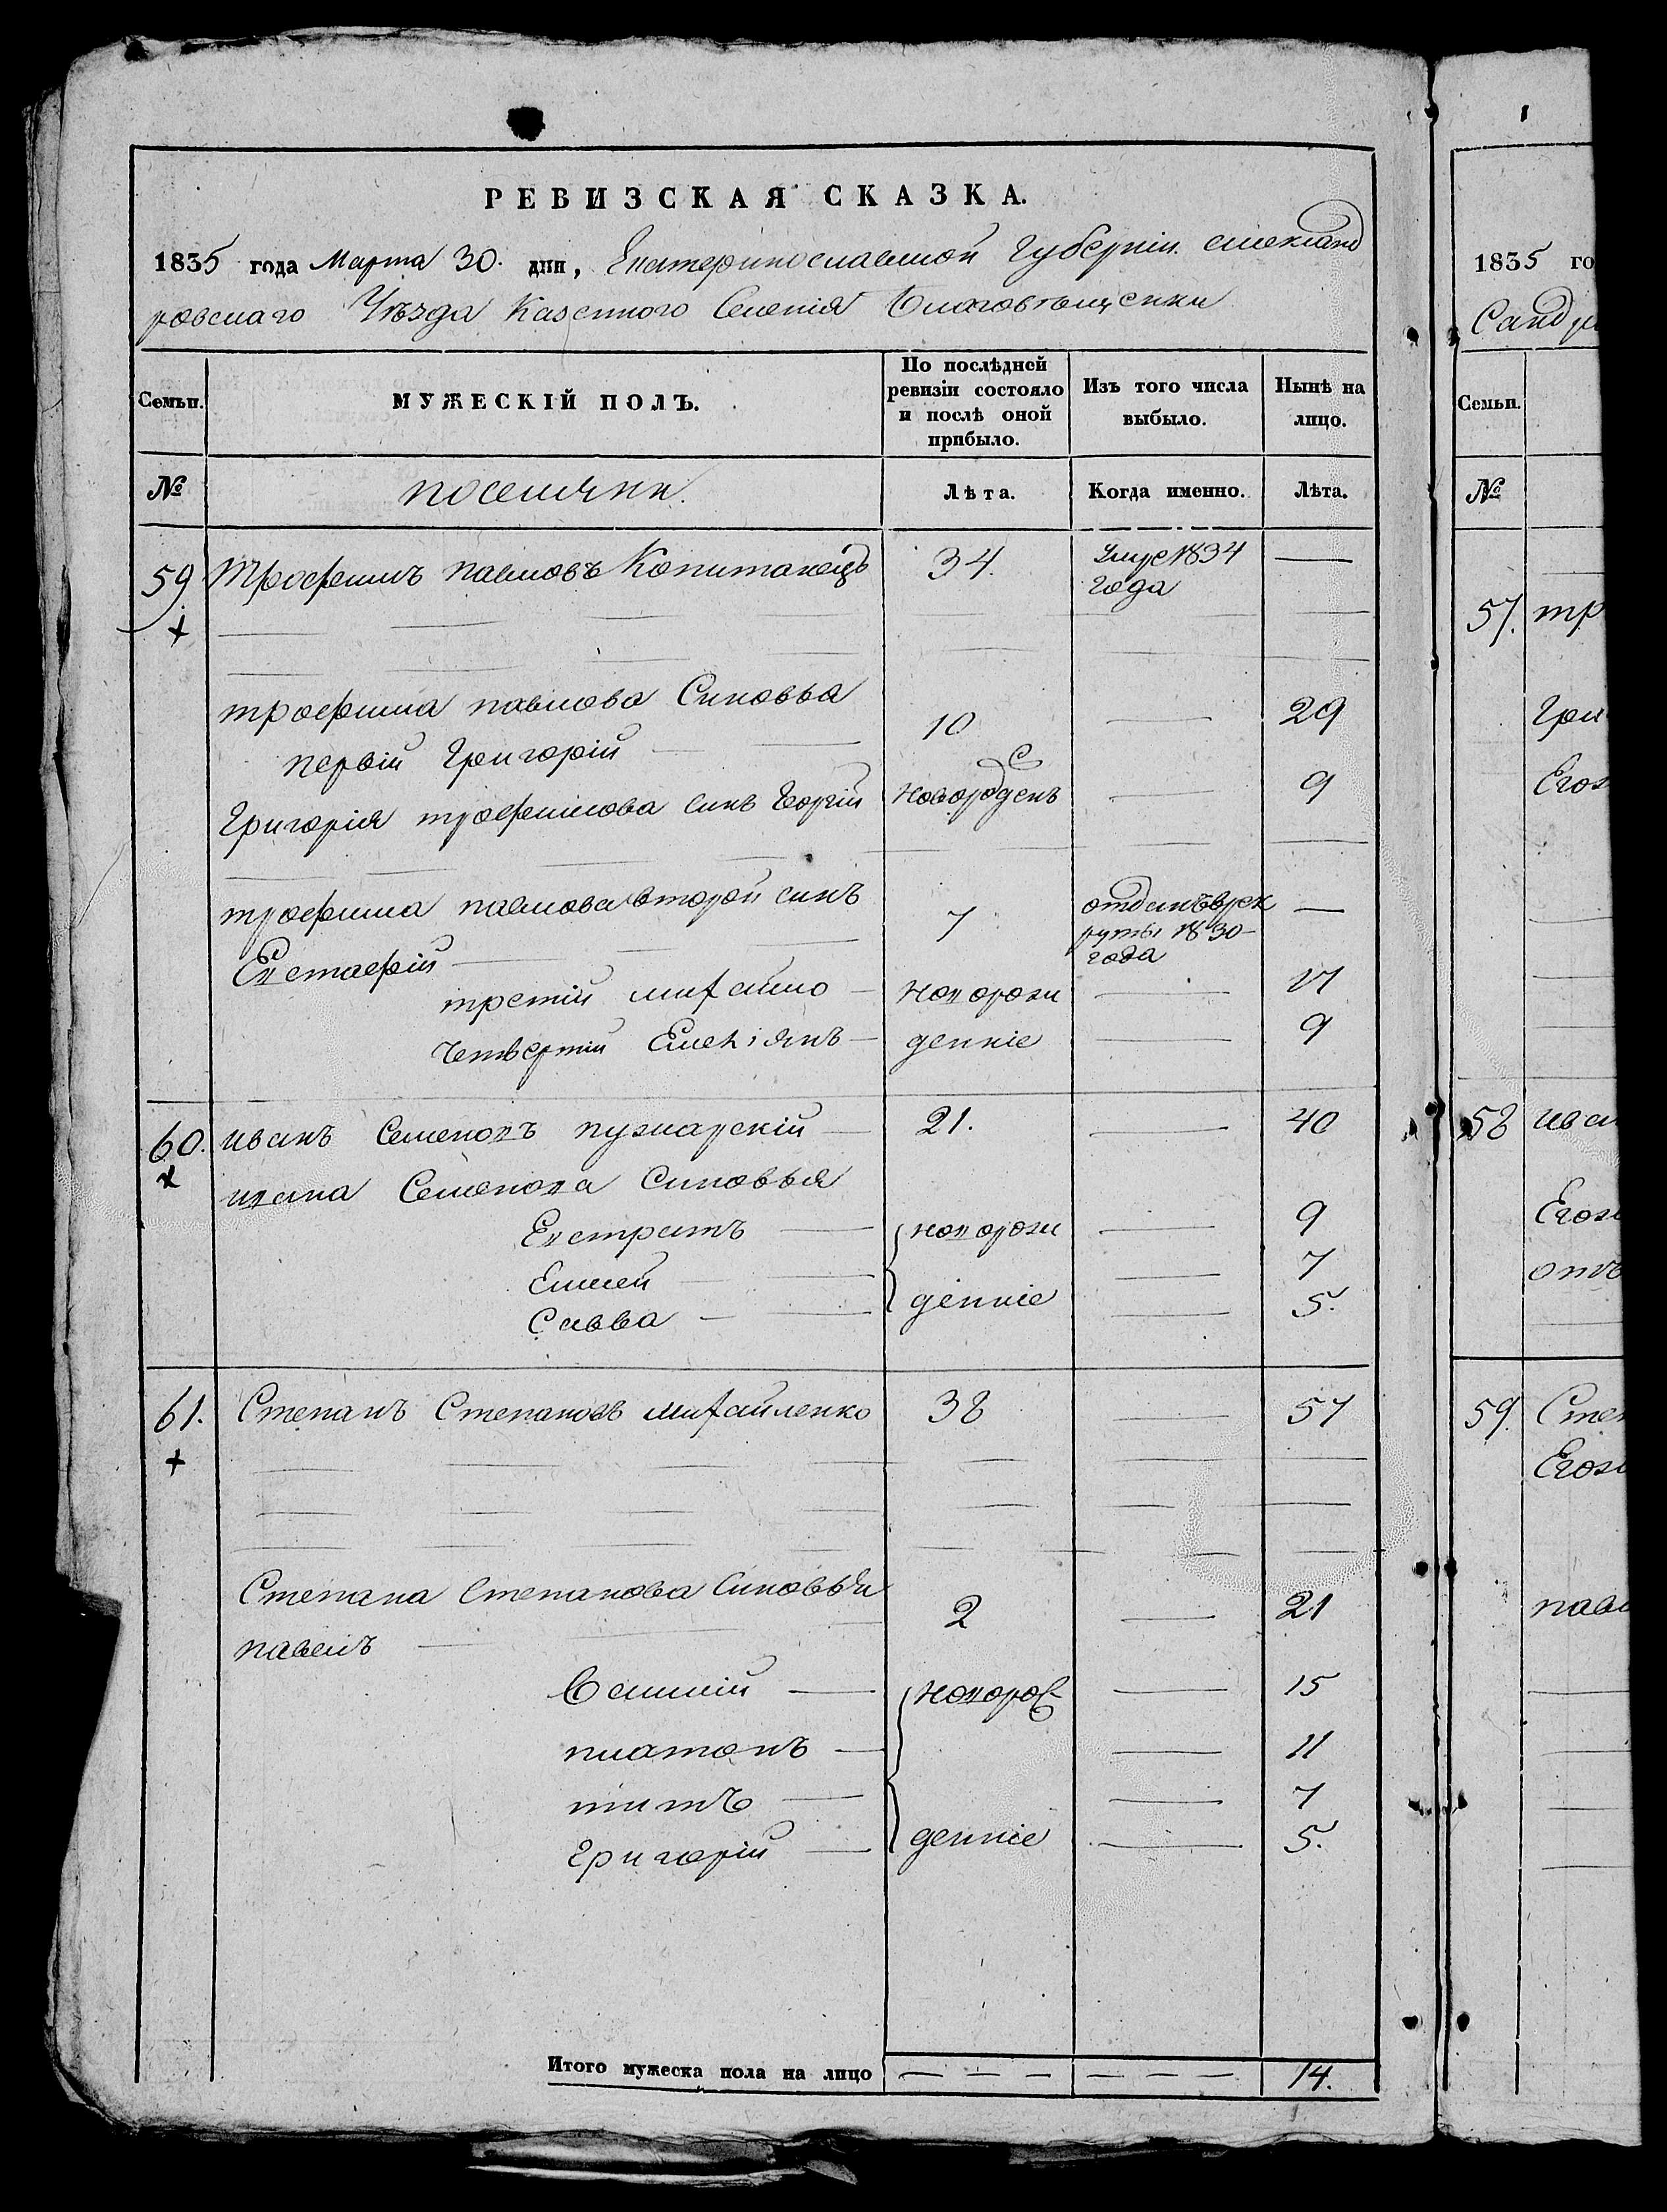 РЕВИЗСКАЯ СКАЗКА.
1835 года Марта 30. дня, Екатеринославской Губерніи. Александ
ровскаго Уѣзда Казенного Селенія Благовѣщенки
Семьи. МУЖЕСКІЙ ПОЛЪ. По послѣдней ревизіи состояло и послѣ оной прибыло. Изъ того числа выбыло. Нынѣ на лицо.
№ поселяни. Лѣта. Когда именно. Лѣта.
59. Трофимъ павловъ Копитанецъ 34. Умре 1834 года —
трофима павлова Синовья
первій Григорій 10 — 29
Григорія трофимова синъ Георгій новорожденъ — 9
трофима павлова второй синъ 7 отданъ в рек
руты 1830 —
Евстафій года
третій михайло новорож — 17
четвертій Емеліянъ денніе — 9
60. иванъ Семеновъ пузнарскій 21. — 40
ивана Семенова Синовья
Евстратъ новорож — 9
Елисей — 7
Савва денніе — 5.
61. Степанъ Степановъ михайленко 38 — 57
Степана Степанова Синовья
павелъ 2 — 21
Василій новорож — 15
платонъ — 11
титъ — 7
Григорій денніе — 5.
Итого мужеска пола на лицо — — — — — — 14.
1835 го
Санд
Семьи.
№
57. тр
Гри
Его
58 ива
Его
59. Степ
Его
павл